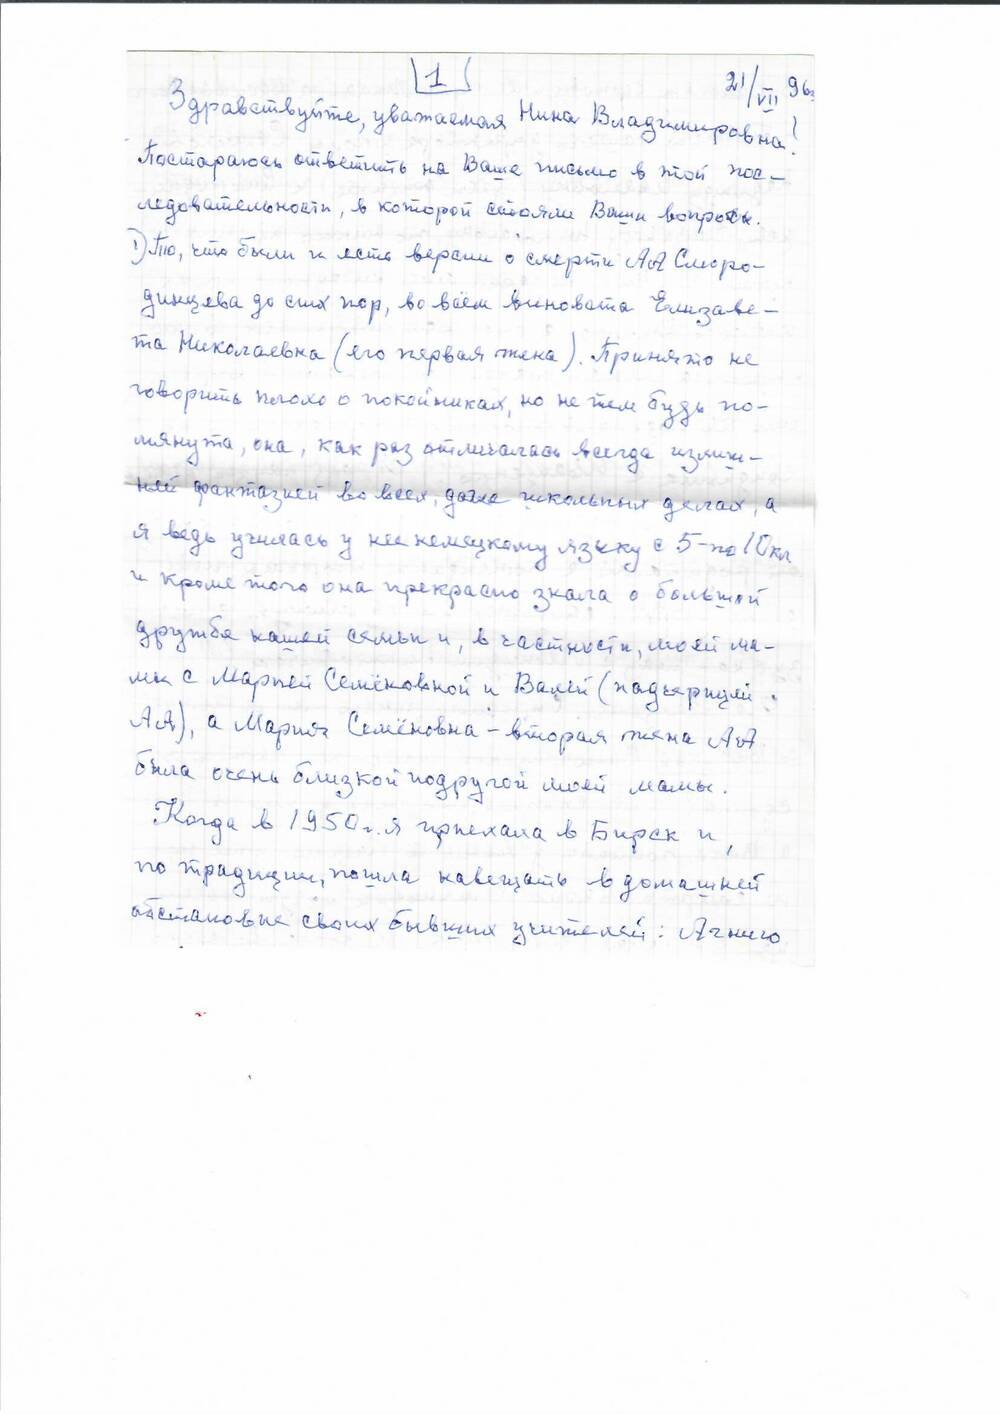 1
21/VII 96г
Здравствуйте, уважаемая Нина Владимировна!
Постараюсь ответить на Ваше письмо в той пос-
ледовательности, в которой стояли Ваши вопросы.
1) То, что были и есть версии о смерти АА Сморо-
динцева до сих пор, во всём виновата Елизаве-
та Николаевна (его первая жена). Принято не
говорить плохо о покойниках, но не тем будь по-
мянута, она, как раз отличалась всегда излиш-
ней фантазией во всех, даже школьных делах, а
я ведь училась у неё немецкому языку с 5-по 10кл
и кроме того она прекрасно знала о большой
дружбе нашей семьи и, в частности, моей ма-
мы с Марией Семёновной и Валей (падчерицей
АА), а Мария Семёновна - вторая жена АА
была очень близкой подругой моей мамы.
Когда в 1950г. я приехала в Бирск и,
по традиции, пошла навещать в домашней
обстановке своих бывших учителей: Агнию